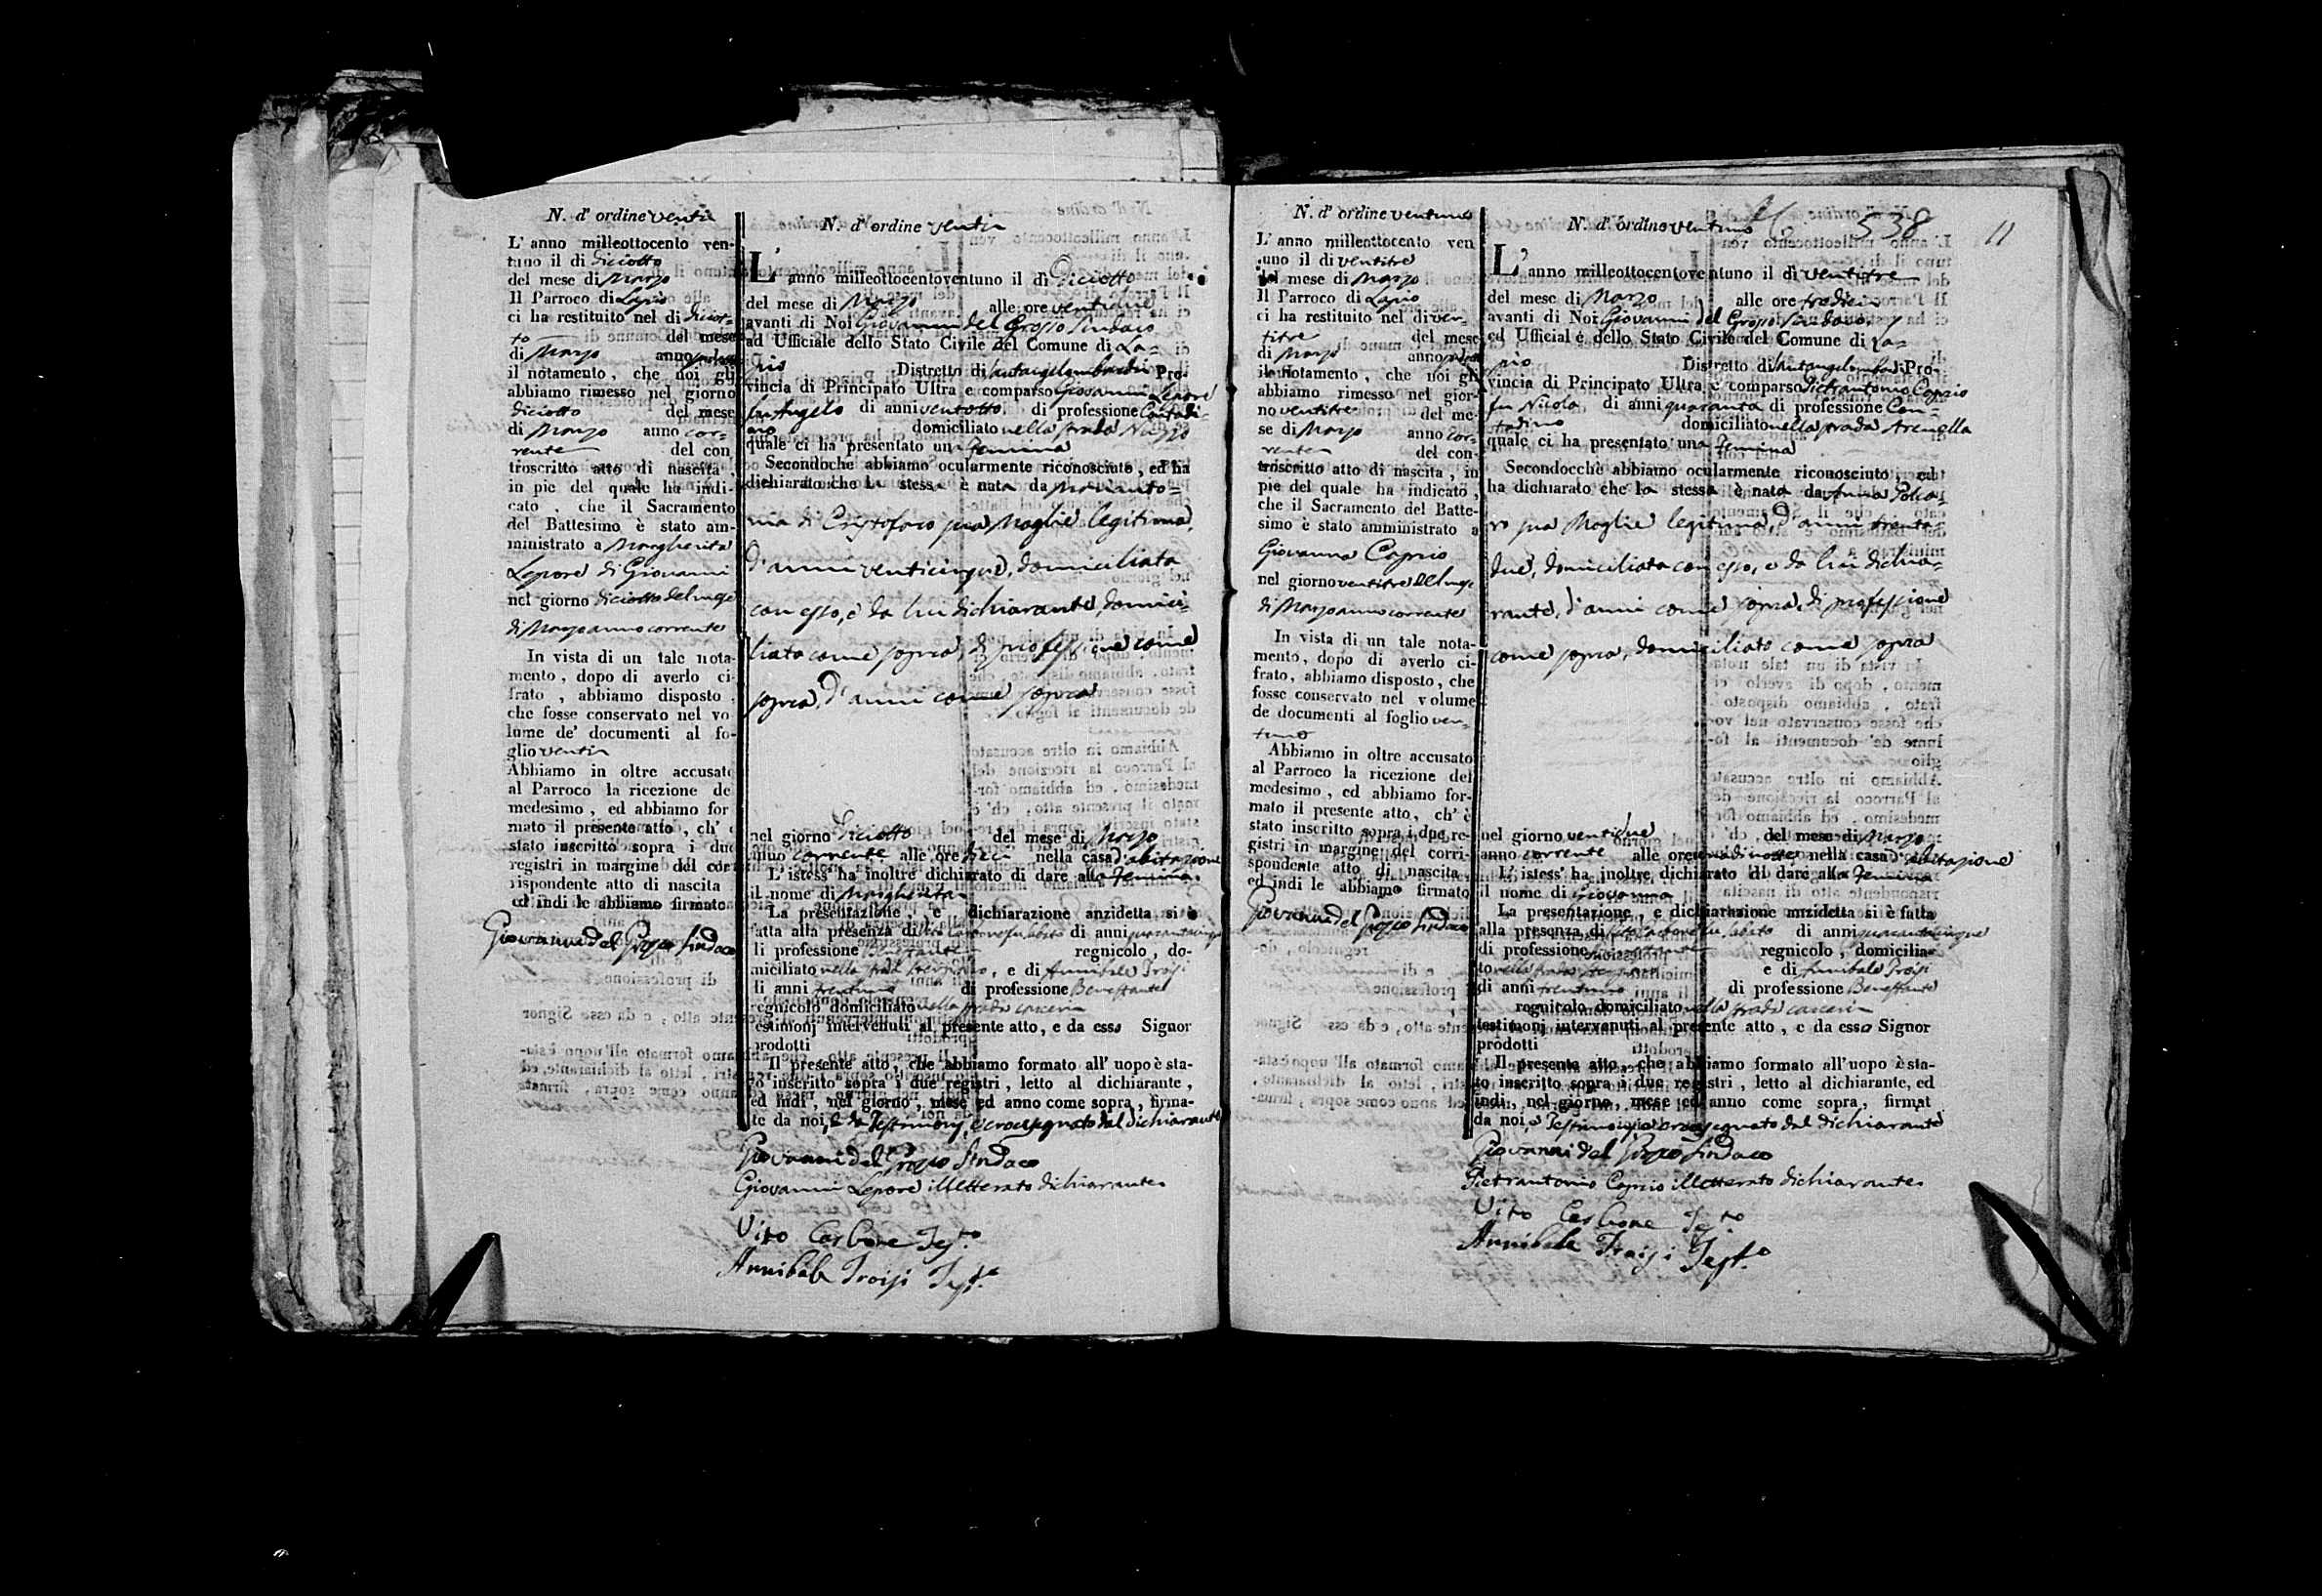 N. d' ordine venti
L' anno milleottocento ven-
tuno il di diciotto
del mese di Marzo
Il Parroco di Lapio
ci ha restituito nel di diciot-
to del mese
di Marzo anno
il notamento, che noi gli
abbiamo rimesso nel giorno
diciotto del mese
di Marzo anno cor-
rente del con
troscritto atto di nascita,
in pie del quale ha indi-
cato, che il Sacramento
del Battesimo è stato am-
ministrato a Margherita
Lepore di Giovanni
nel giorno diciotto del mese
di Marzo anno corrente
In vista di un tale nota-
mento, dopo di averlo ci
frato, abbiamo disposto,
che fosse conservato nel vo
lume de' documenti al fo-
glio venti
Abbiamo in oltre accusato
al Parroco la ricezione de
medesimo, ed abbiamo for
mato il presente atto, ch'
stato inscritto sopra i due
registri in margine del cor
rispondente atto di nascita
ed indi le abbiamo firmato
Giovanni del Grosso Sindaco
N. d' ordine venti
L' anno milleottocentoventuno il di Diciotto
del mese di Marzo alle ore ventidue
avanti di Noi Giovanni del Grosso Sindaco
ad Ufficiale dello Stato Civile del Comune di La=
pio Distretto di Santangelolombardi Pro-
vincia di Principato Ultra è comparso Giovanni Lepore
fu Angelo di anni ventotto di professione Contadi-
no domiciliato nella strada
quale ci ha presentato una Femina
Secondochè abbiamo ocularmente riconosciuto, ed ha
dichiarato che la stessa è nata da Mariantو=
nia di Cristofaro sua Moglie legitima,
d'anni venticinque, domiciliata
con esso, e da lui dichiarante, domici-
liato come sopra, di professione come
sopra, d'anni come sopra
nel giorno diciotto del mese di Marzo
anno corrente alle ore dieci nella casa d'abitazione
L'istess' ha inoltre dichiarato di dare alla Femina
il nome di Margherita
La presentazione, e dichiarazione anzidetta si è
fatta alla presenza di Vito Carbone fu Sabato di anni quarantacinque
di professione Benestante regnicolo, do-
miciliato nella strada, e di Annibale Troisi
di anni trentuno di professione Benestante
regnicolo domiciliato nella strada carceri
testimonj intervenuti al presente atto, e da esso Signor
prodotti
Il presente atto, che abbiamo formato all' uopo è sta-
to inscritto sopra i due registri, letto al dichiarante,
ed indi, nel giorno, mese ed anno come sopra, firma-
te da noi, e da Testimonj, e crocesegnato dal dichiarante
Giovanni del Grosso Sindaco
Giovanni Lepore illetterato dichiarante
Vito Carbone Test.°
Annibale Troisi Test.°
N. d' ordine ventuno
L' anno milleottocento ven
tuno il di ventitre
del mese di Marzo
Il Parroco di Lapio
ci ha restituito nel di ven-
titre del mese
di Marzo anno
il notamento, che noi gli
abbiamo rimesso nel gior-
no ventitre del me-
se di Marzo anno cor-
rente del con-
troscritto atto di nascita, in
pie del quale ha indicato,
che il Sacramento del Batte-
simo è stato amministrato a
Giovanna Caprio
nel giorno ventitre del mese
di Marzo anno corrente
In vista di un tale nota-
mento, dopo di averlo ci-
frato, abbiamo disposto, che
fosse conservato nel volume
de documenti al foglio ven-
tuno
Abbiamo in oltre accusato
al Parroco la ricezione del
medesimo, ed abbiamo for-
mato il presente atto, ch' è
stato inscritto sopra i due re-
gistri in margine del corri-
spondente atto di nascita
ed indi le abbiamo firmato
Giovanni del Grosso Sindaco
N. d' ordine ventuno 538 11
L' anno milleottocentoventuno il di ventitre
del mese di Marzo alle ore tredici
avanti di Noi Giovanni del Grosso Sindaco
ed Ufficiale dello Stato Civile del Comune di La=
pio Distretto di Santangelolombardi Pro-
vincia di Principato Ultra è comparso Pietrantonio Caprio
fu Nicola di anni quaranta di professione Con=
tadino domiciliato nella strada Arenella
quale ci ha presentato una Femina
Secondocchè abbiamo ocularmente riconosciuto, ed
ha dichiarato che la stessa è nata da Anna Polca-
ro sua Moglie legitima, d'anni trenta-
due, domiciliata con esso, e da lui dichia-
rante, d'anni come sopra, di professione
come sopra, domiciliato come sopra
nel giorno ventidue del mese di Marzo
anno corrente alle ore di notte nella casa d'abitazione
L' istess' ha inoltre dichiarato di dare alla Femina
il nome di Giovanna
La presentazione, e dichiarazione anzidetta si è fatta
alla presenza di Vito Carbone fu Sabato di anni quarantacinque
di professione Benestante regnicolo, domicilia-
to nella strada e di Annibale Troisi
di anni trentuno di professione Benestante
regnicolo domiciliato nella strada carceri
testimonj intervenuti al presente atto, e da esso Signor
prodotti
Il presente atto, che abbiamo formato all'uopo è sta-
to inscritto sopra i due registri, letto al dichiarante, ed
indi, nel giorno, mese ed anno come sopra, firmat
da noi, e Testimonj, e crocesegnato dal dichiarante
Giovanni del Grosso Sindaco
Pietrantonio Caprio illetterato dichiarante
Vito Carbone Test.°
Annibale Troisi Test.°